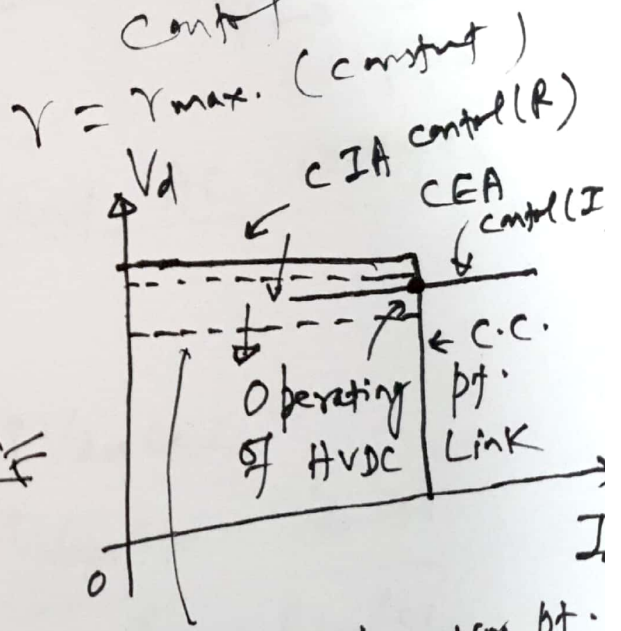 γ = γmax. (constant)
CIA control (R)
Vd
CEA
control (I
← C.C.
Operating pt.
of HVDC Link
0
I
pt.